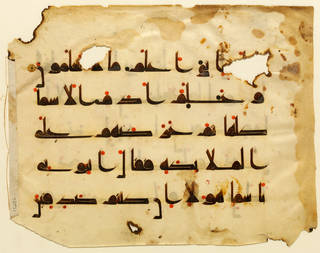 اني اعلم ما لا تعلمون
و علم ادم الاسما
كلها ثم عرضهم على
الملئكة فقال انبوني
باسما هولا ان كنتم صدقين